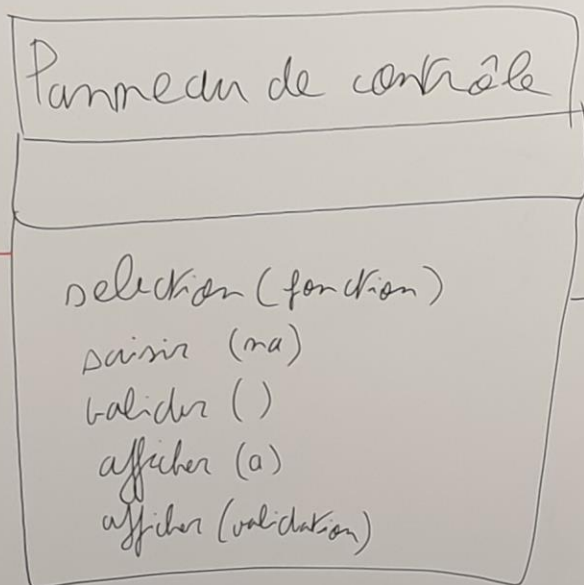 Panneau de contrôle
selection (fonction)
saisir (ma)
valider ()
afficher (a)
afficher (validation)